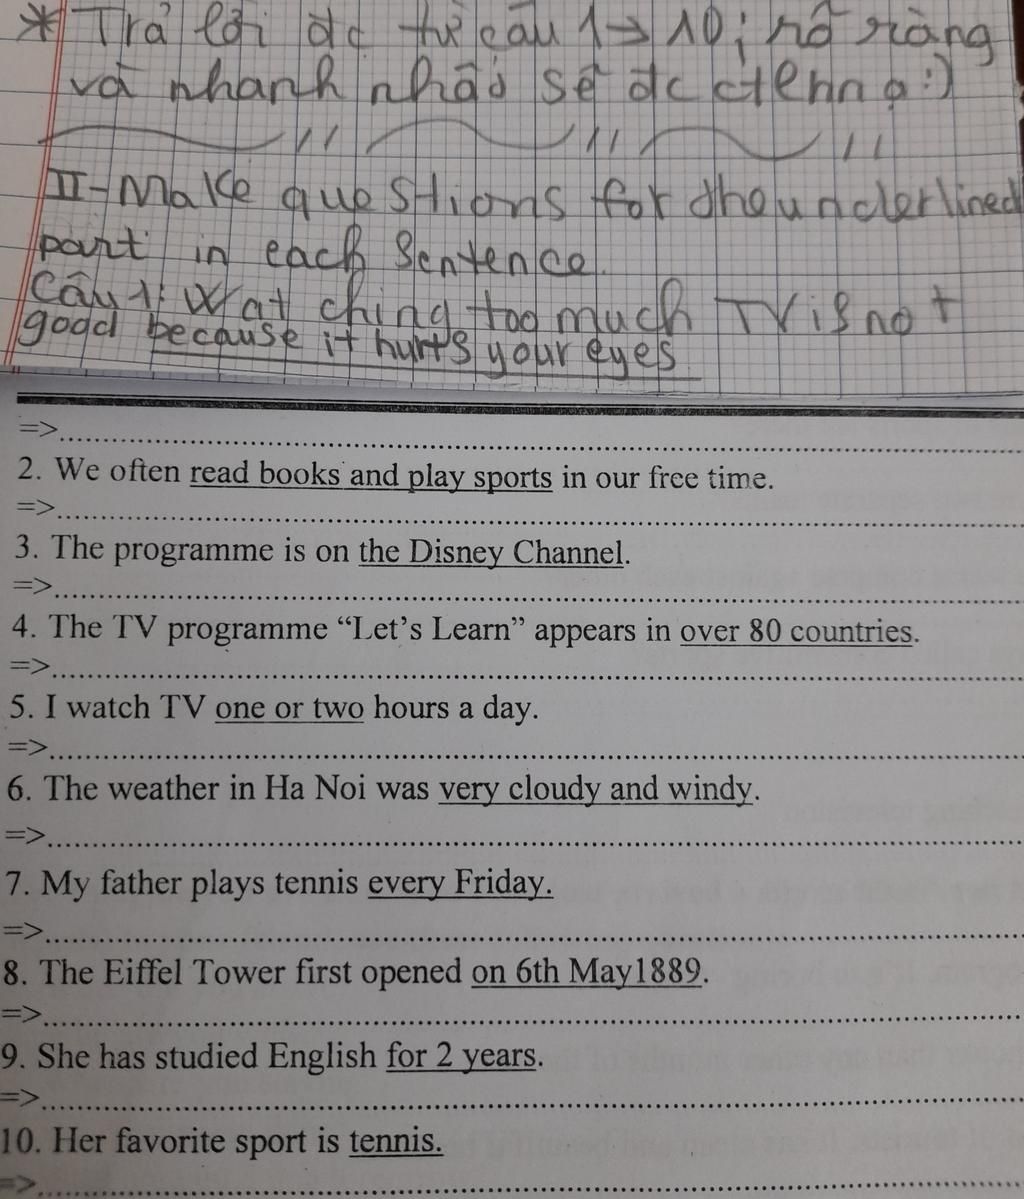 * Trả lời đc từ câu 1→10; rõ ràng
và nhanh nhất sẽ đc ctlhn ạ:)
II-Make questions for the underlined
part in each sentence.
Câu 1: Watching too much TV is not
good because it hurts your eyes
=>
2. We often read books and play sports in our free time.
=>
3. The programme is on the Disney Channel.
=>
4. The TV programme “Let’s Learn” appears in over 80 countries.
=>
5. I watch TV one or two hours a day.
=>
6. The weather in Ha Noi was very cloudy and windy.
=>
7. My father plays tennis every Friday.
=>
8. The Eiffel Tower first opened on 6th May1889.
=>
9. She has studied English for 2 years.
=>
10. Her favorite sport is tennis.
=>